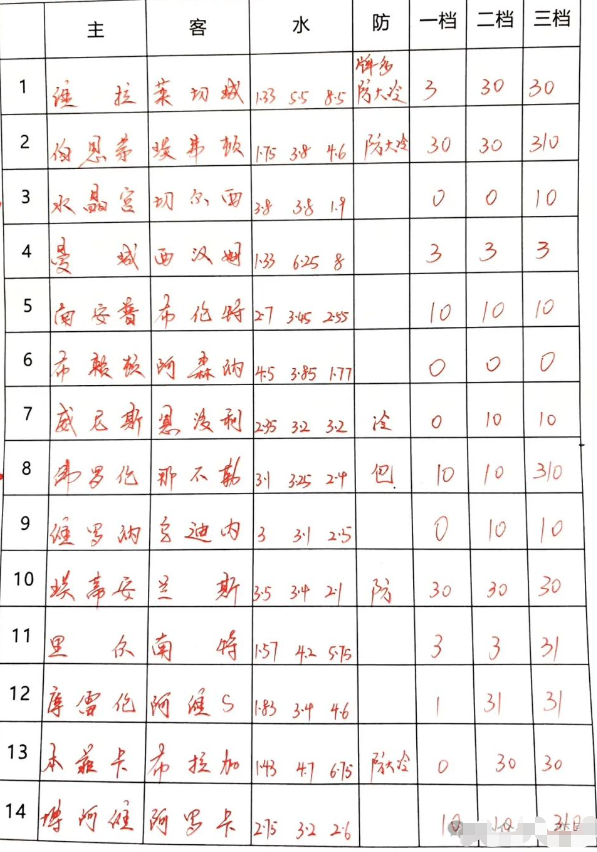 主 客 水 防 一档 二档 三档
1 维拉 莱切城 1.33 5.5 8.5 牌多 防大冷 3 30 30
2 伯恩茅 埃弗顿 1.75 3.8 4.6 防大冷 30 30 310
3 水晶宫 切尔西 3.8 3.8 1.9 0 0 10
4 曼城 西汉姆 1.33 6.25 8 3 3 3
5 南安普 布伦特 2.7 3.45 2.55 10 10 10
6 布赖顿 阿森纳 4.5 3.85 1.77 0 0 0
7 威尼斯 恩波利 2.35 3.2 3.2 冷 0 10 10
8 弗罗伦 那不勒 3.1 3.25 2.4 巴 10 10 310
9 维罗纳 乌迪内 3 3.1 2.5 0 10 10
10 埃蒂安 兰斯 3.5 3.4 2.1 防 30 30 30
11 里尔 南特 1.57 4.2 5.75 3 3 31
12 摩雷伦 阿维S 1.83 3.4 4.6 1 31 31
13 本菲卡 布拉加 1.43 4.7 6.75 防大冷 0 30 30
14 博阿维 阿罗卡 2.75 3.2 2.6 10 10 310